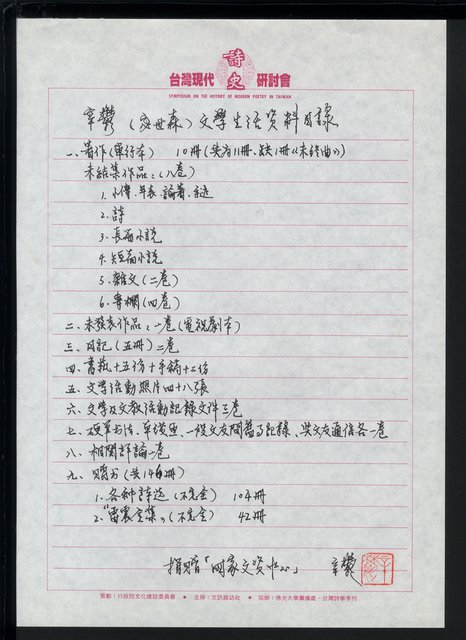 台灣現代詩史研討會
SYMPOSIUM ON THE HISTORY OF MODERN POETRY IN TAIWAN
辛鬱(宓世森)文學生活資料目錄
一、著作(單行本) 10冊(共有11冊、缺1冊《未終曲》)
未結集作品:(八卷)
1. 小傳、年表、論著、手迹
2. 詩
3. 長篇小說
4. 短篇小說
5. 雜文(二卷)
6. 專欄(四卷)
二、未發表作品:一卷(電視劇本)
三、日記(五冊)二卷
四、書報十五份十手稿十二份
五、文學活動照片四十八張
六、文學及文教活動記錄文件三卷
七、硬筆书法、一般文友問答記錄、與文友通信各一卷
八、相關評論一卷
九、贈书(共146冊)
1. 各种詩选(不完全) 104冊
2.《雷震全集》(不完全) 42冊
捐贈「国家文资中心」 辛鬱
策劃:行政院文化建設委員會 ● 主辦:文訊雜誌社 ● 協辦:佛光大學籌備處、台灣詩學季刊